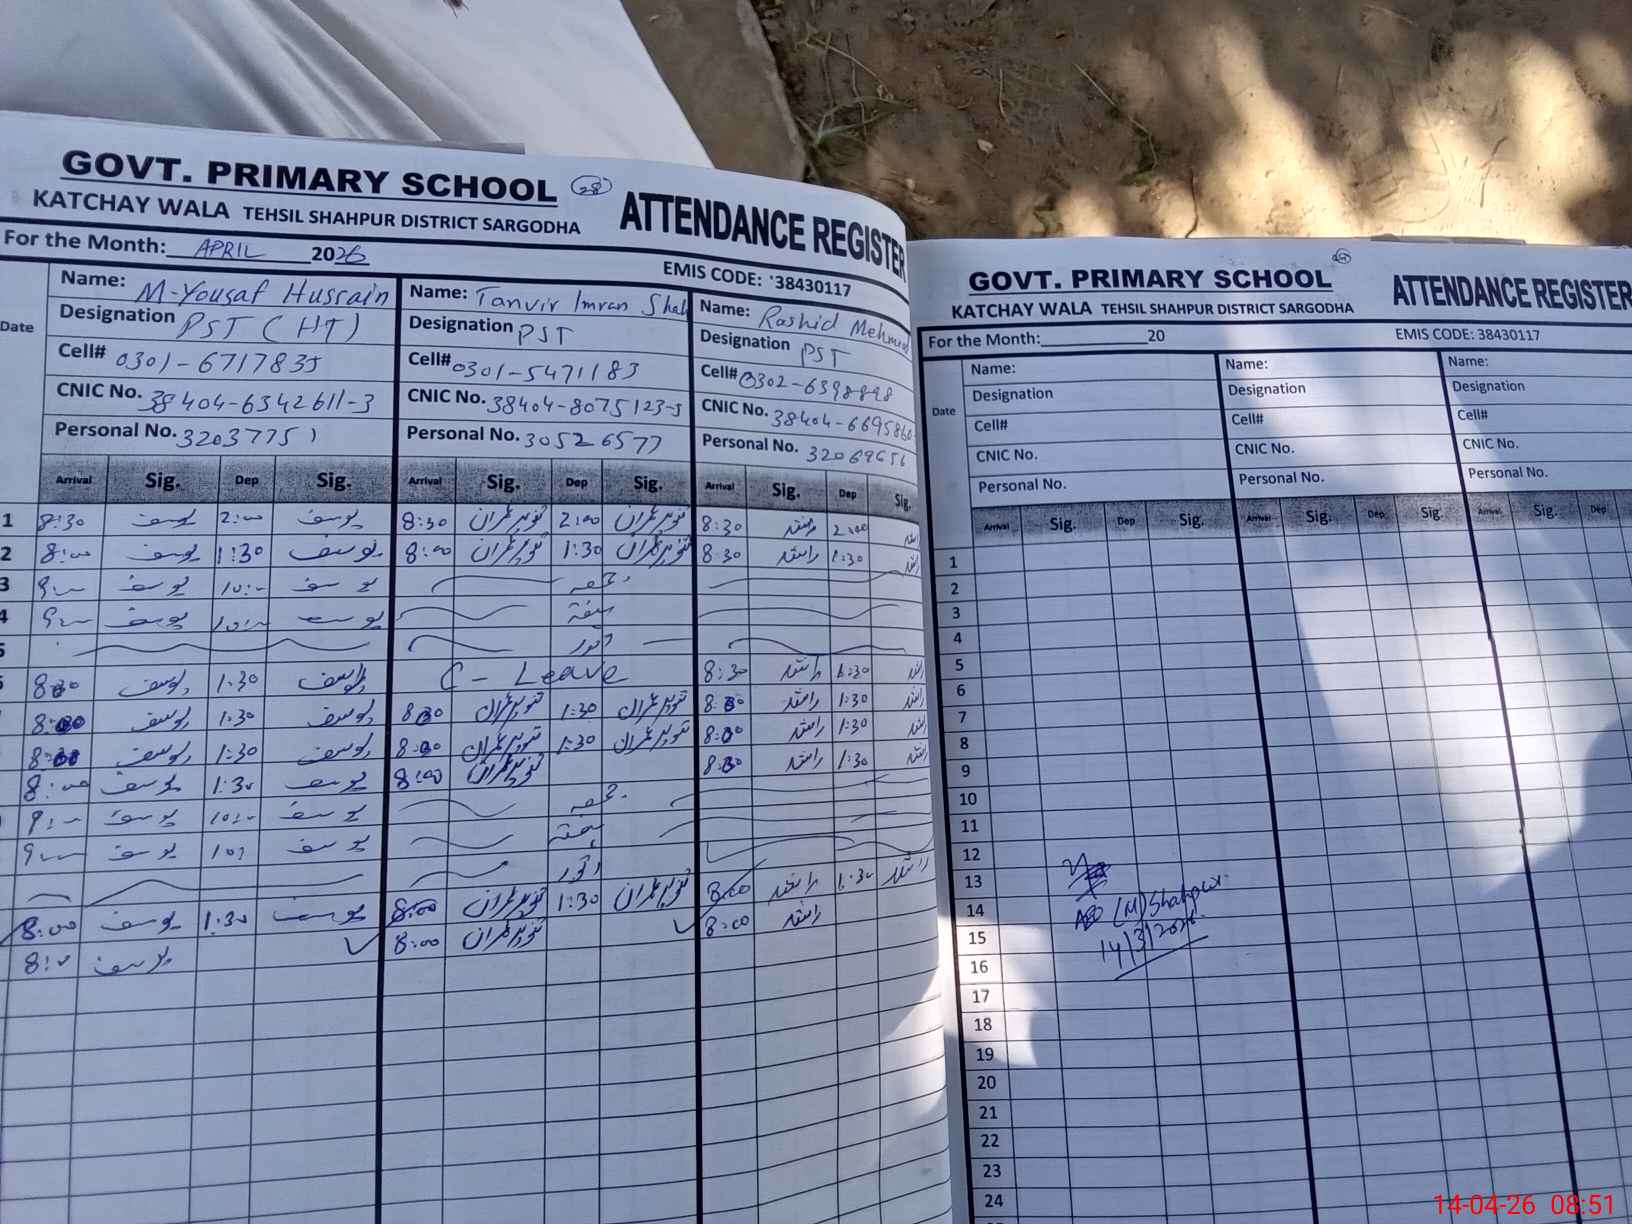 GOVT. PRIMARY SCHOOL 28
KATCHAY WALA TEHSIL SHAHPUR DISTRICT SARGODHA
ATTENDANCE REGISTER
For the Month: APRIL 2026
EMIS CODE: '38430117
Date
Name: M-Yousaf Hussain Name: Tanvir Imran Shah Name: Rashid Mehmood
Designation PST (HT) Designation PST Designation PST
Cell# 0301-6717835 Cell# 0301-5471183 Cell# 0302-6398898
CNIC No. 38404-6342611-3 CNIC No. 38404-8075123-5 CNIC No. 38404-6695860
Personal No. 32037751 Personal No. 30526577 Personal No. 32069656
Arrival Sig. Dep Sig. Arrival Sig. Dep Sig. Arrival Sig. Dep Sig.
1 8:30 یوسف 2:00 یوسف 8:30 تنویر عمران 2:00 تنویر عمران 8:30 راشد 2:00 راشد
2 8:00 یوسف 1:30 یوسف 8:00 تنویر عمران 1:30 تنویر عمران 8:30 راشد 1:30 راشد
3 یوسف 10:- یوسف جمعہ
4 یوسف 10:- یوسف ہفتہ
5 اتوار
6 یوسف 1:30 یوسف C - Leave 8:30 راشد 1:30 راشد
یوسف 1:30 یوسف تنویر عمران 1:30 تنویر عمران راشد 1:30 راشد
یوسف 1:30 یوسف تنویر عمران 1:30 تنویر عمران راشد 1:30 راشد
8:00 یوسف 1:30 یوسف 8:00 تنویر عمران راشد 1:30 راشد
یوسف 10:- یوسف جمعہ
یوسف یوسف ہفتہ
اتوار
8:00 یوسف 1:30 یوسف 8:00 تنویر عمران 1:30 تنویر عمران 8:00 راشد 1:30 راشد
یوسف 8:00 تنویر عمران 8:00 راشد
GOVT. PRIMARY SCHOOL
KATCHAY WALA TEHSIL SHAHPUR DISTRICT SARGODHA
ATTENDANCE REGISTER
For the Month: 20
EMIS CODE: 38430117
Date
Name: Name: Name:
Designation Designation Designation
Cell# Cell# Cell#
CNIC No. CNIC No. CNIC No.
Personal No. Personal No. Personal No.
Arrival Sig. Dep Sig. Arrival Sig. Dep Sig. Arrival Sig. Dep
1
2
3
4
5
6
7
8
9
10
11
12
13
14 (M) Shahpur
15 14/3/2026
16
17
18
19
20
21
22
23
24
14-04-26 08:51